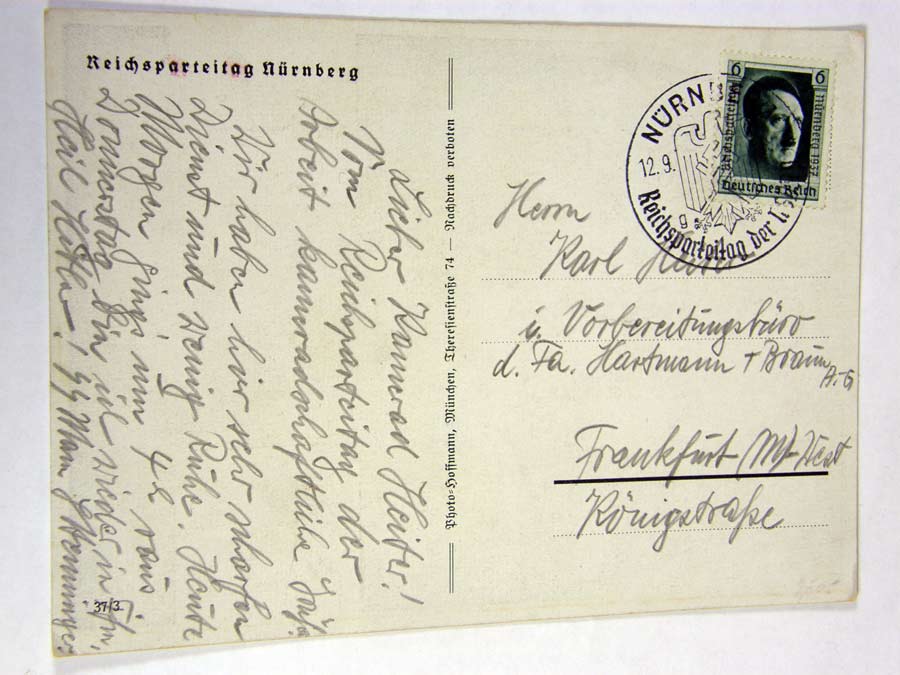 Reichsparteitag Nürnberg
Lieber Kamerad Heiter!
Vom Reichsparteitag der
Arbeit kameradschaftliche Grüße.
Wir haben hier sehr scharfen
Dienst und wenig Ruhe. Heute
Morgen gings um 4h raus
Donnerstag bin ich wieder in
Heil Hitler! ϟϟ Mann
37/3
Photo-Hoffmann, München, Theresienstraße 74 — Nachdruck verboten
NÜRNB
12.9.
g
Reichsparteitag der
6 6
Reichsparteitag
Nürnberg 1937
Deutsches Reich
Herrn
Karl
i. Vorbereitungsbüro
d. Fa. Hartmann + Braun
A-G
Frankfurt (M)-West
Königstraße